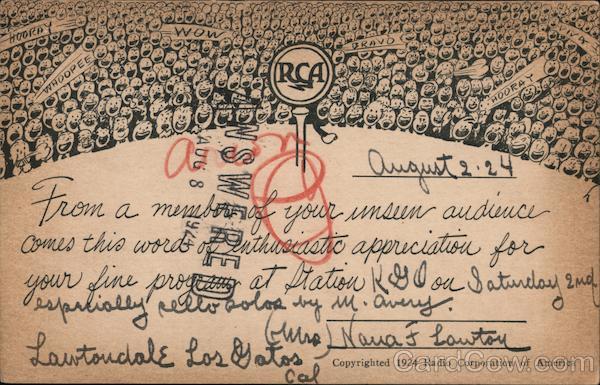 HOORAY
WOW
BRAVO
WHOOPEE
HOORAY
RCA
ANSWERED
AUG 8
August 2-24
From a member of your unseen audience
comes this word of enthusiastic appreciation for
your fine program at Station KGO on Saturday 2nd
especially cello solos by M. Avery.
(Mrs) Nana F Lawton
Lawtondale Los Gatos
Cal
Copyrighted 1924 Radio Corporation of America
CardCow.com